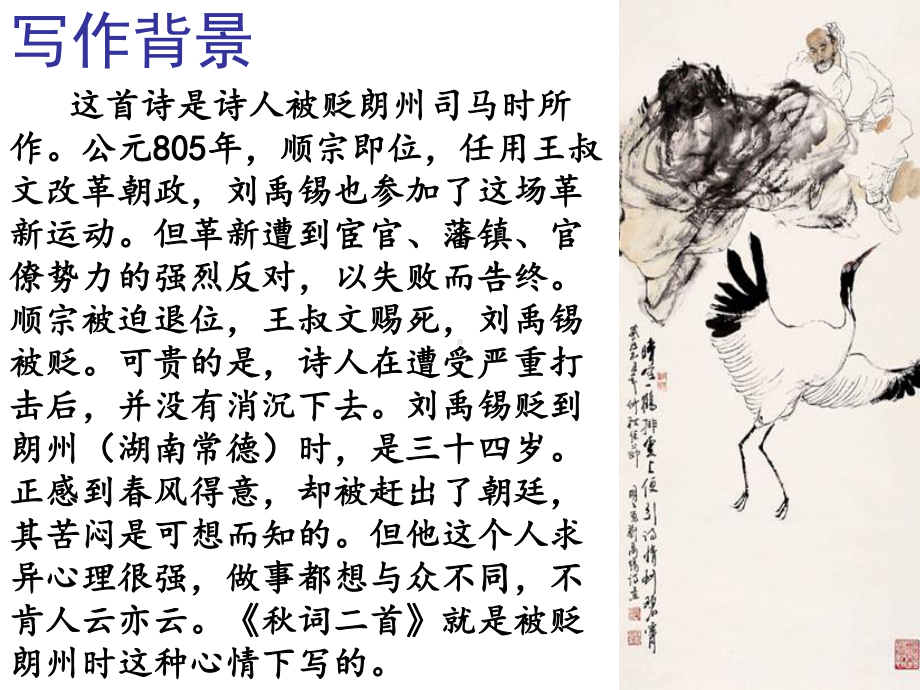 写作背景
这首诗是诗人被贬朗州司马时所
作。公元805年，顺宗即位，任用王叔
文改革朝政，刘禹锡也参加了这场革
新运动。但革新遭到宦官、藩镇、官
僚势力的强烈反对，以失败而告终。
顺宗被迫退位，王叔文赐死，刘禹锡
被贬。可贵的是，诗人在遭受严重打
击后，并没有消沉下去。刘禹锡贬到
朗州（湖南常德）时，是三十四岁。
正感到春风得意，却被赶出了朝廷，
其苦闷是可想而知的。但他这个人求
异心理很强，做事都想与众不同，不
肯人云亦云。《秋词二首》就是被贬
朗州时这种心情下写的。
晴空一鹤排云上便引诗情到碧霄